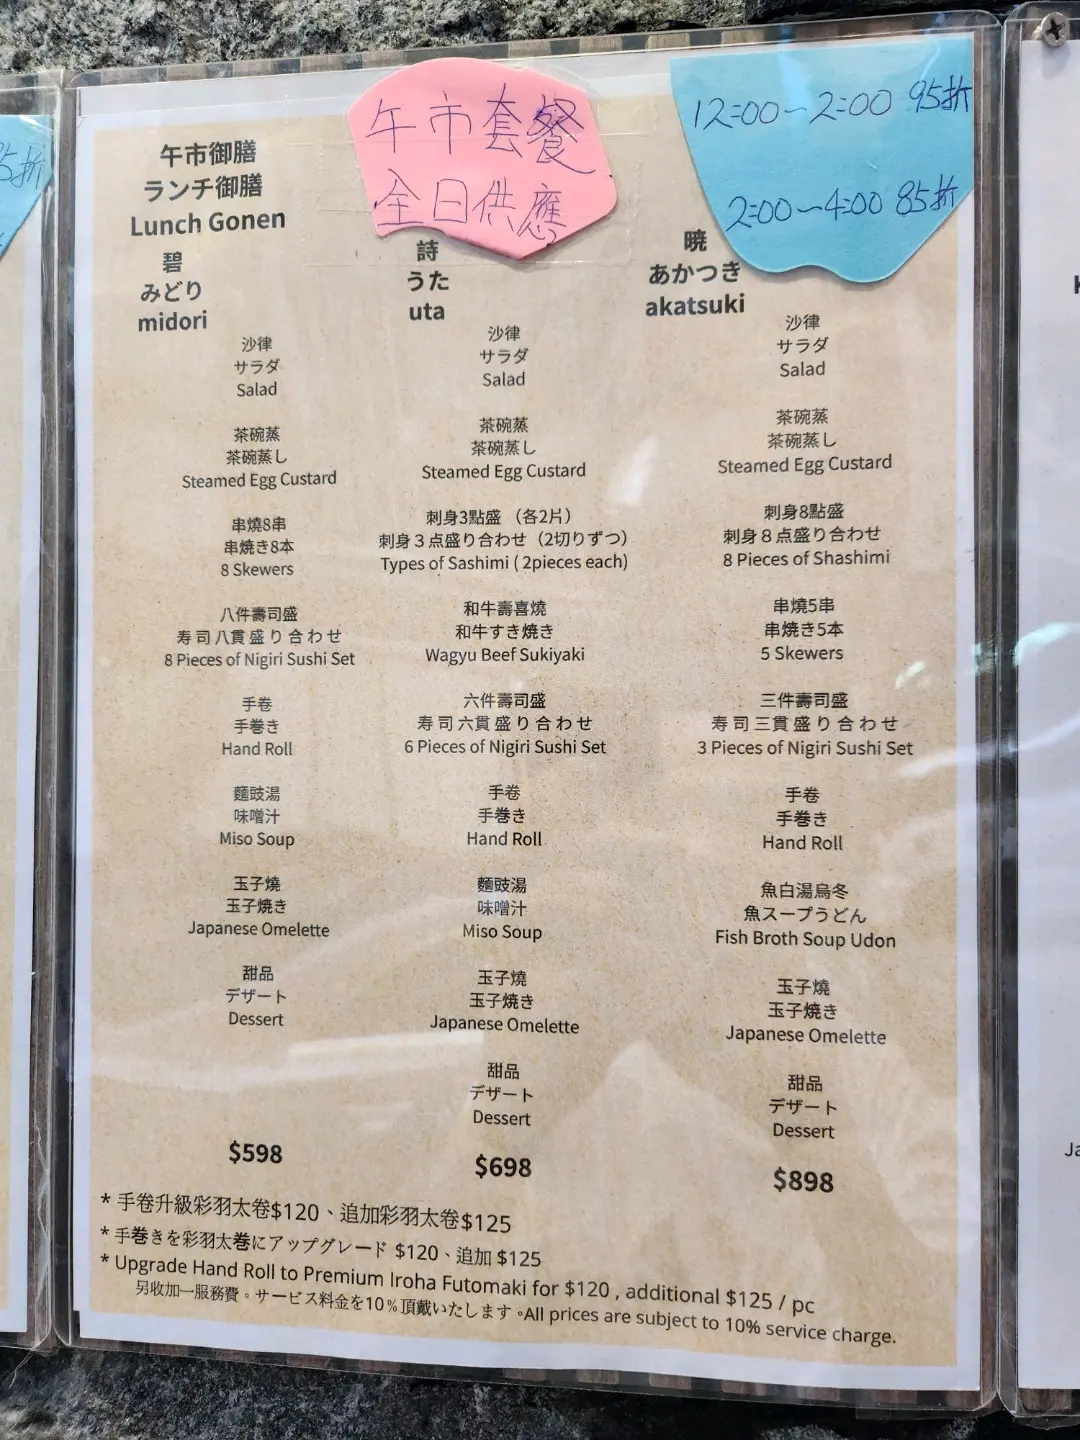 午市套餐
全日供應
12:00～2:00 95折
2:00～4:00 85折
5折
午市御膳
ランチ御膳
Lunch Gonen
碧
みどり
midori
沙律
サラダ
Salad
茶碗蒸
茶碗蒸し
Steamed Egg Custard
串燒8串
串焼き8本
8 Skewers
八件壽司盛
寿司八貫盛り合わせ
8 Pieces of Nigiri Sushi Set
手卷
手巻き
Hand Roll
麵豉湯
味噌汁
Miso Soup
玉子燒
玉子焼き
Japanese Omelette
甜品
デザート
Dessert
$598
詩
うた
uta
沙律
サラダ
Salad
茶碗蒸
茶碗蒸し
Steamed Egg Custard
刺身3點盛 （各2片）
刺身３点盛り合わせ（2切りずつ）
Types of Sashimi ( 2pieces each)
和牛壽喜燒
和牛すき焼き
Wagyu Beef Sukiyaki
六件壽司盛
寿司六貫盛り合わせ
6 Pieces of Nigiri Sushi Set
手卷
手巻き
Hand Roll
麵豉湯
味噌汁
Miso Soup
玉子燒
玉子焼き
Japanese Omelette
甜品
デザート
Dessert
$698
暁
あかつき
akatsuki
沙律
サラダ
Salad
茶碗蒸
茶碗蒸し
Steamed Egg Custard
刺身8點盛
刺身８点盛り合わせ
8 Pieces of Shashimi
串燒5串
串焼き5本
5 Skewers
三件壽司盛
寿司三貫盛り合わせ
3 Pieces of Nigiri Sushi Set
手卷
手巻き
Hand Roll
魚白湯烏冬
魚スープうどん
Fish Broth Soup Udon
玉子燒
玉子焼き
Japanese Omelette
甜品
デザート
Dessert
$898
* 手卷升級彩羽太卷$120、追加彩羽太卷$125
* 手巻きを彩羽太巻にアップグレード $120、追加 $125
* Upgrade Hand Roll to Premium Iroha Futomaki for $120 , additional $125 / pc
另收加一服務費。サービス料金を10％頂戴いたします。All prices are subject to 10% service charge.